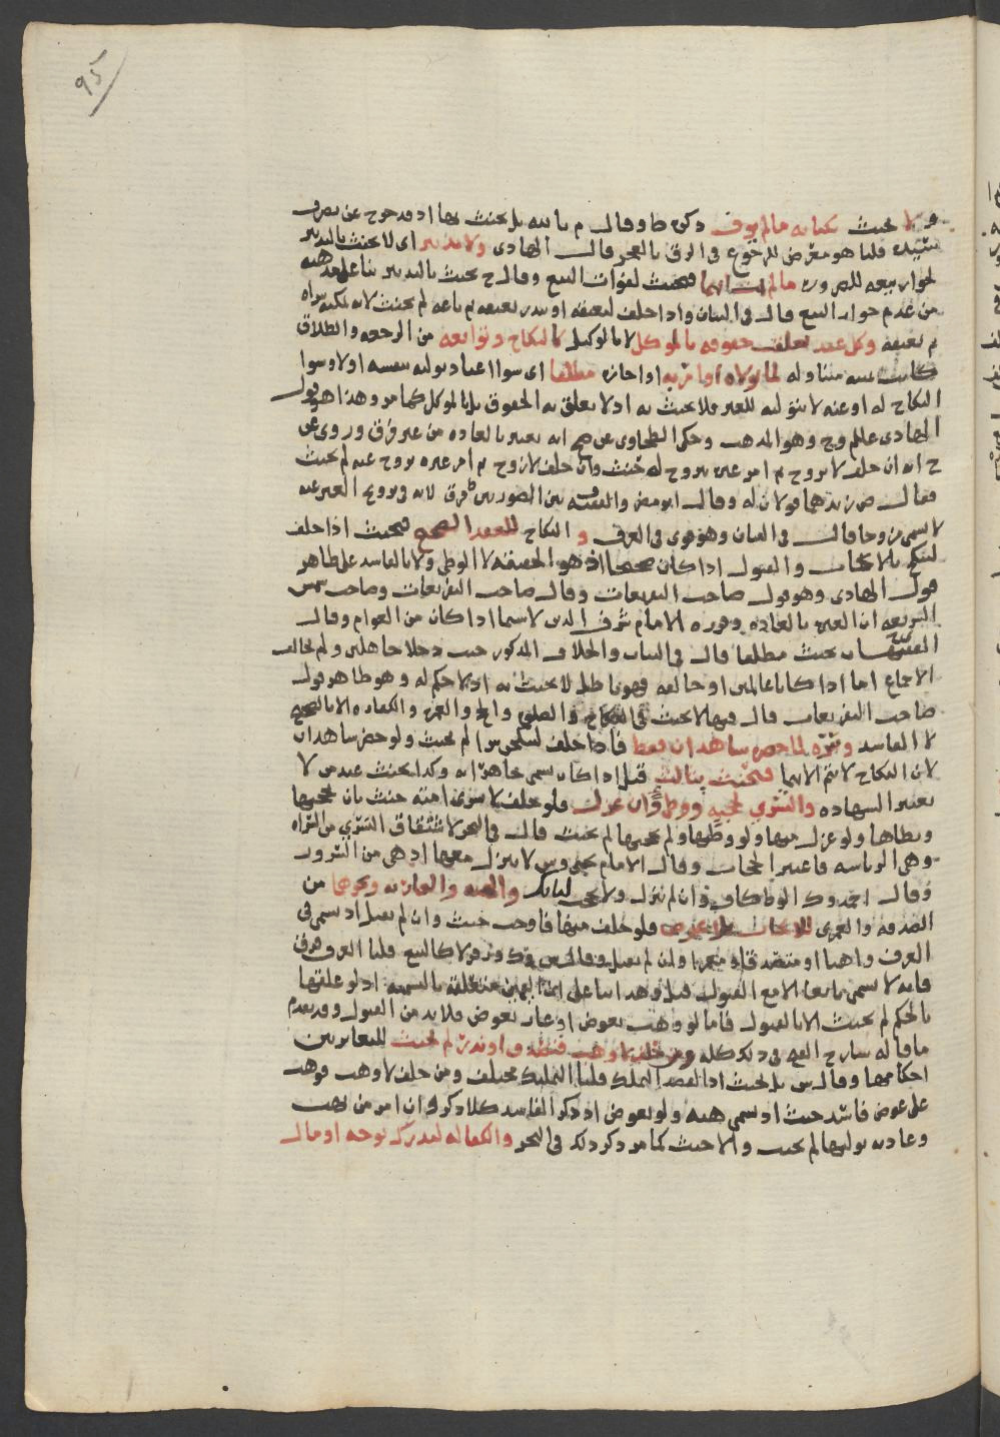 95
ولا يحنث بكتابه مالم يوف ذكره ط وقال م بالله بل يحنث بها اذ قد خرج عن تصرف
سيده قلنا هو معرض للرجوع في الرق بالعجز قال الهادي ولا مدبر اى لا يحنث بالتدبير
لجواز بيعه للضرورة مالم فيحنث لفوات البيع وقال ح يحنث بالتدبير بنا على مذهبه
من عدم جواز البيع قال في البيان واذا حلف ليعتقه او نذر بعتقه ثم باعه لم يحنث لانه يمكنه شراه
ثم يعتقه وكل عقد تعلق حقوقه بالموكل لا بالوكيل كالنكاح وتوابعه من الرجعه والطلاق
كانت يمينه متناوله لما تولاه او امر به اواجازه مطلقا اى سوا اعتاد توليه بنفسه او لا وسوا
النكاح له او عنه لا بتوليه للغير فلا يحنث به اذ لا تعلق به الحقوق بل بالموكل كما مر وهذا هو قول
الهادي علم وح وهو المذهب وحكى الطحاوي عن صح انه يعتبر بالعاده من غير فرق وروى عن
ح انه ان حلف لا تزوج ثم امر غيره يزوج له حنث وان حلف لا زوج ثم امر غيره يزوج عنه لم يحنث
فقال ص زيدهما قولان له وقال ابو مضر والفقيه بين الصورتين فرق لانه في تزويج الغير عنه
لا يسمى مزوجا قال في البيان وهو قوى في العرف و النكاح للعقد الصحيح فيحنث اذا حلف
لينكح بالايجاب والقبول اذا كان صحيحا اذ هو الحقيقه لا الوطى ولا بالفاسد على ظاهر
قول الهادي وهو قول صاحب التفريعات وقال صاحب التفريعات وصاحب شمس
الشريعه ان العبره بالعاده وقوره الامام شرف الدين لا سيما اذا كان من العوام وقال
يحنث مطلقا قال في البيان والخلاف المذكور حيث دخلا جاهلين ولم يخالف
الاجماع اما اذا كانا عالمين او خالفه فهو باطل لا يحنث به اذ لا حكم له وهو ظاهر قول
صاحب التفريعات قال فيها لا يحنث في النكاح والصلوه والحج والعمره والكفاره الا بالصحيح
لا الفاسد وسره لما حضره شاهدان فقط فاذا حلف لينكحن سرا لم يحنث ولو حضر شاهدان
لان النكاح لا يتم الا بهما فيحنث بثالث قيل اذا كان يسمى مجاهرا به وكذا يحنث عند من لا
يعتبر الشهاده والتسرى لحجبه ووطى وان عزل فلو حلف لا تسرى امته حنث بان يحجبها
ويطاها ولو عزل عنها ولو وطيها ولم يحجبها لم يحنث قال في البحر لاشتقاق التسري من السراه
وهي الرياسه فاعتبر الحجاب وقال الامام يحيى وس لا بد ان ينزل معها اذ هي من السرور
وقال احمد وك الوطى كاف وان لم ينزل ولا يحجب والهبه والعاريه ونحوهما من
الصدقه والعمرى للايجاب بلا عوض فلو حلف منها فاوجب حنث وان لم يقبل اذ يسمى في
العرف واهبا او متصدقا ومعمرا وان لم يقبل وقال س وك وزفر لا كالبيع قلنا العرف فرق
فانه لا يسمى بايعا الا مع القبول قيل وهذا بنا على ان اليمين متعلقه بالتسميه اذ لو علقها
بالحكم لم يحنث الا بالقبول فاما لو وهب بعوض او عاز بعوض فلا بد من القبول وقد تقدم
ما قاله شارح الفتح في ذلك كله ومن حلف لا وهب فتصدق او نذر لم يحنث لتغاير بين
احكامهما وقال س بل يحنث اذ القصد التمليك قلنا التمليك مختلف ومن حلف لا وهب فوهب
على عوض فاسد حنث اذ يسمى هبه ولو بعوض اذ ذكر الفاسد كلا ذكر وان امر من يهب
وعادته توليها لم يحنث والا حنث كما مر ذكر ذلك في البحر والكفاله لتدرك بوجه او مال